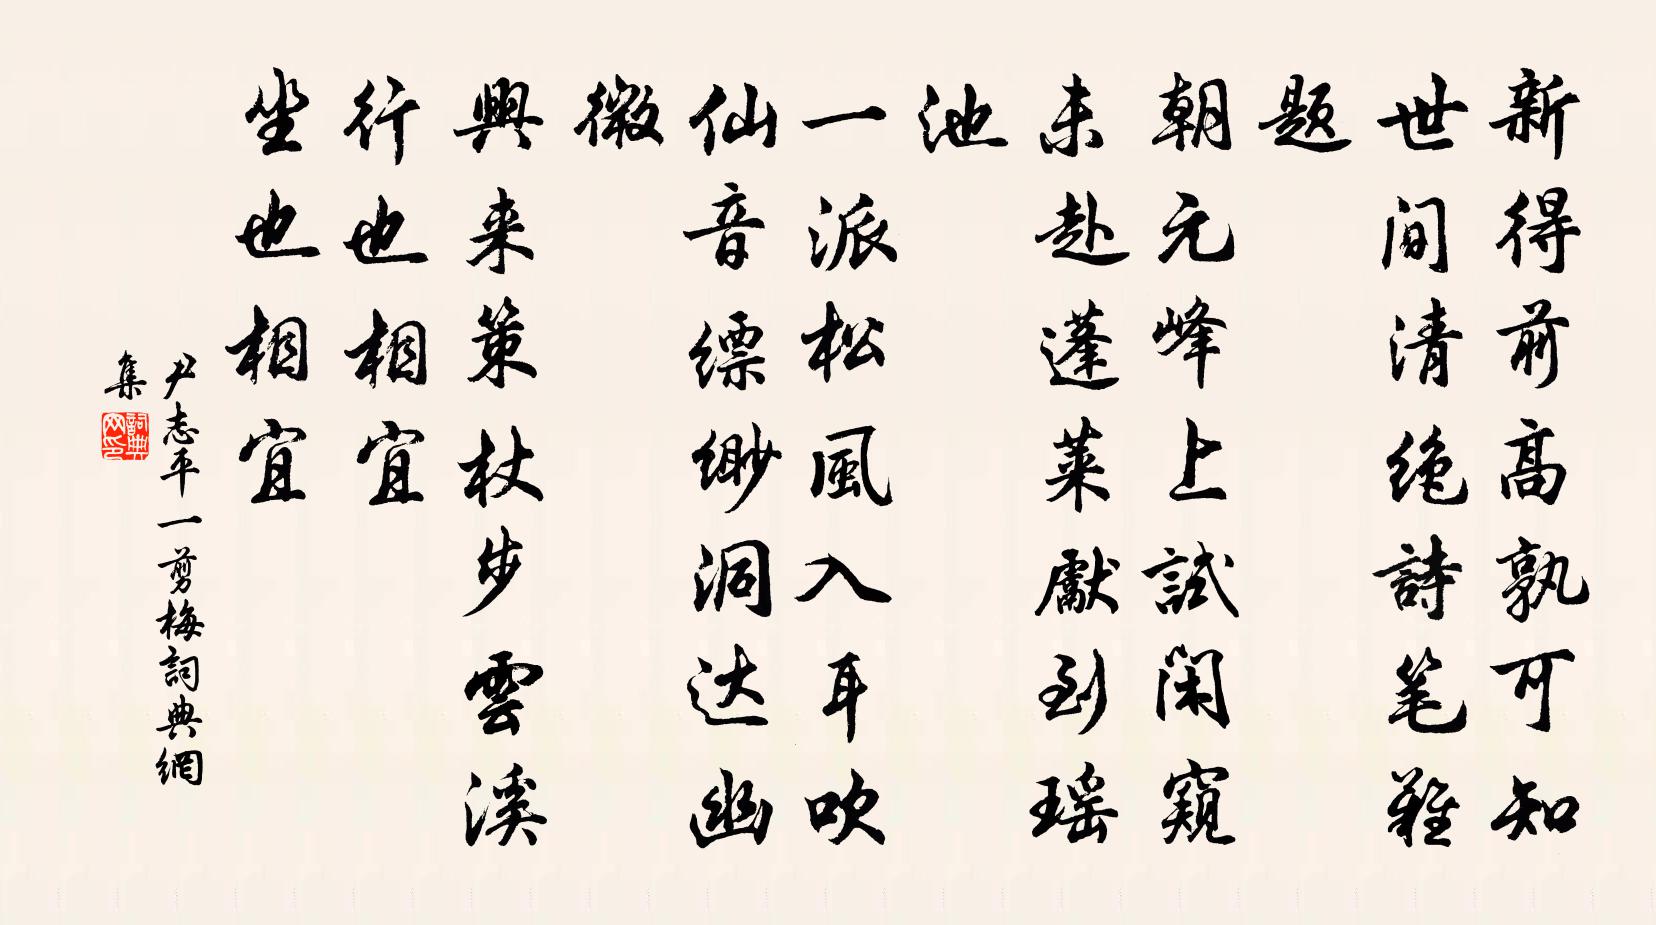 新得前高孰可知
世间清绝詩笔難
题
朝元峰上試闲窥
未赴蓬莱獻到瑶
池
一派松風入耳吹
仙音缥缈洞达幽
微
興来策杖步雲溪
行也相宜
坐也相宜
尹志平一剪梅詞典網
集
詞典網印